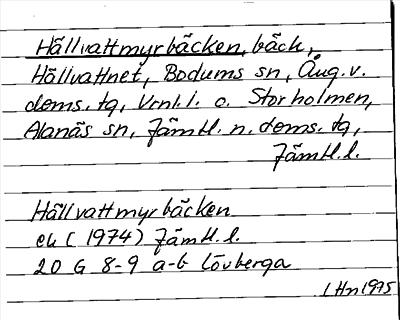 Hällvattmyrbäcken, bäck,
Hällvattnet, Bodums sn, Ång. v.
doms. tg, Vrnl. l. o. Storholmen,
Alanäs sn, Jämtl. n. doms. tg,
Jämtl. l.
Hällvattmyrbäcken
ek (1974) Jämtl. l.
20 G 8-9 a-b Lövberga
LHn 1975